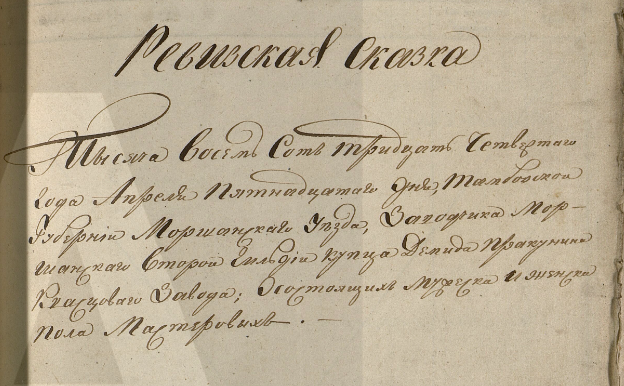 Ревизская Сказка
Тысяча Восемь Сотъ тридцать Четвертаго
Года Апреля Пятнадцатаго дня, Тамбовской
Губерніи Моршанскаго Уезда, Заводчика Мор-
шанскаго Второй Гильдіи купца Демида Пракунина
Завода; О состоящихъ мужеска и женска
пола Мастеровыхъ. —